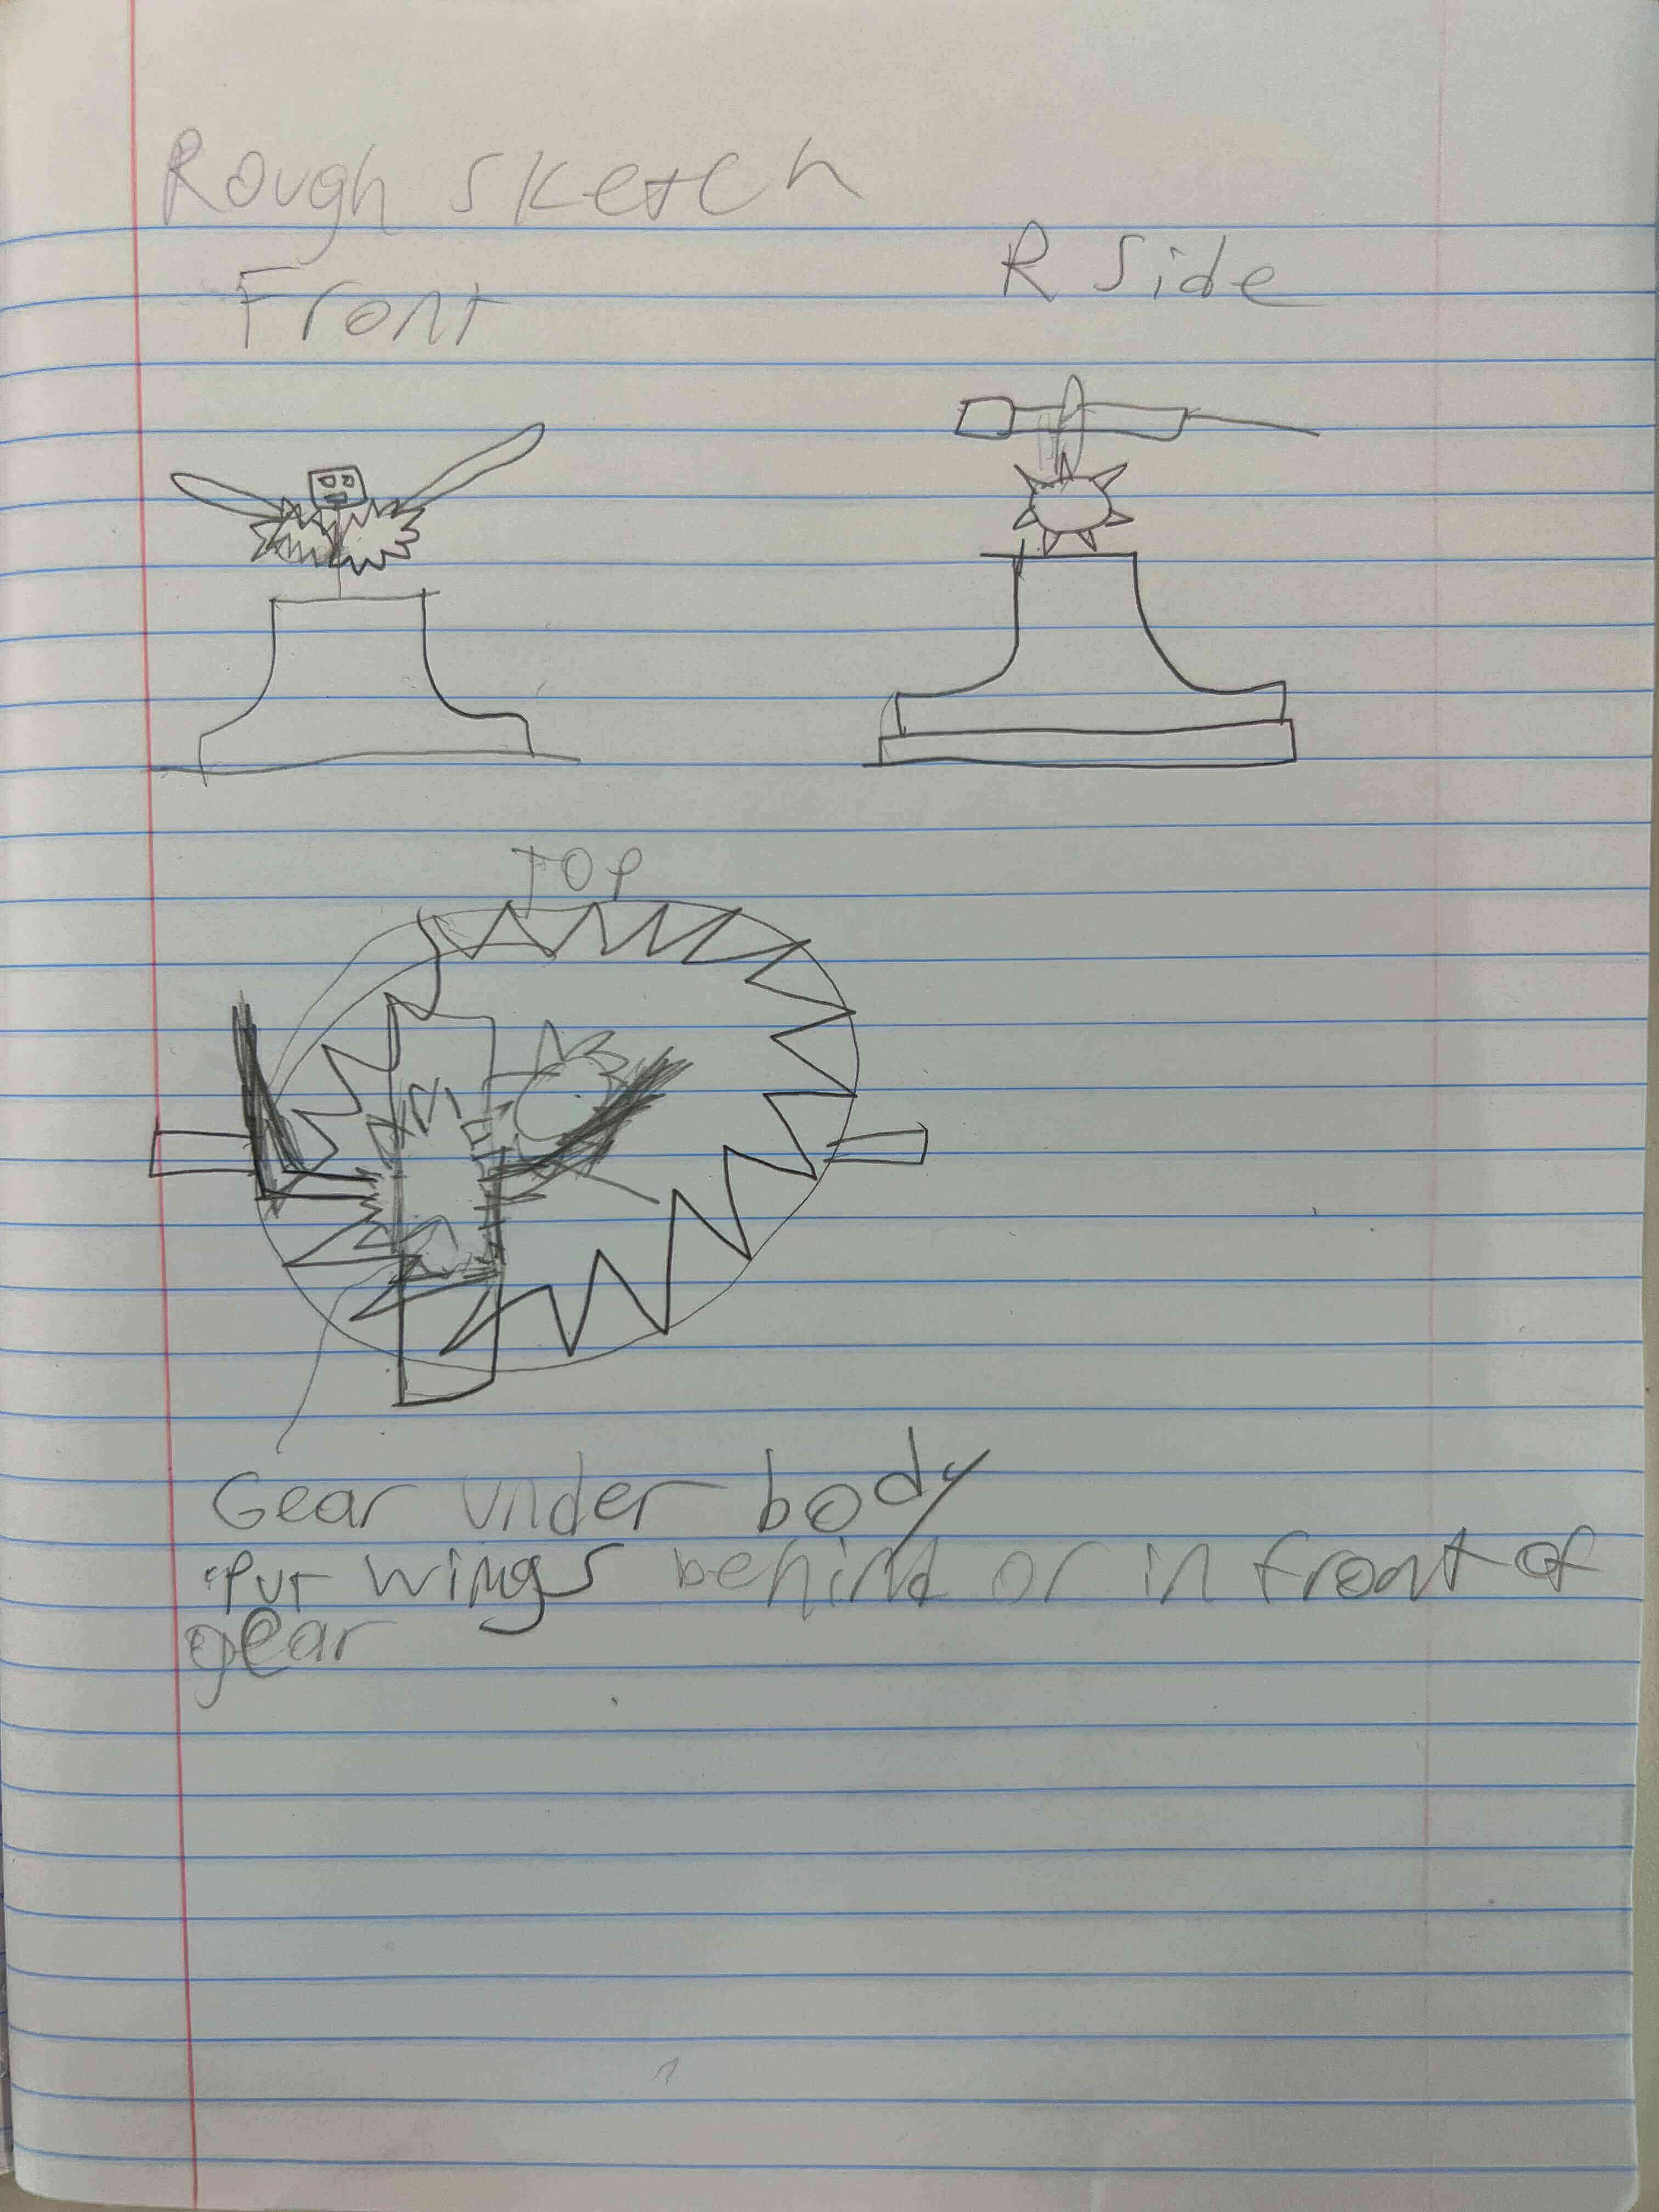 Rough sketch
Front
R Side
TOP
Gear under body
"Put wings behind or in front of
gear